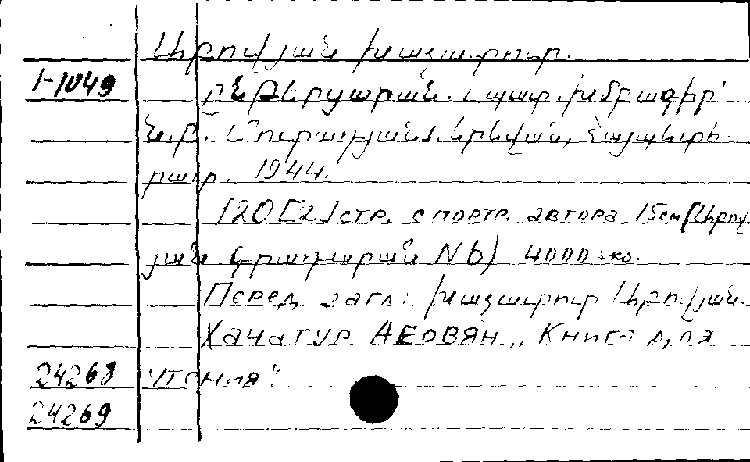 Աբովյան Խաչատուր.
1-1049
Ընթերցարան. Պատ. խմբագիր՝
Երևան, Հայպետհ
րատ. 1944.
120[2] стр. с портр. автора 15см (Աբով
յան Գրադարան N 6) 4000 экз.
Перед загл: Խաչատուր Աբովյան.
Хачатур Абовян „Книга для
24268 чтения".
24269